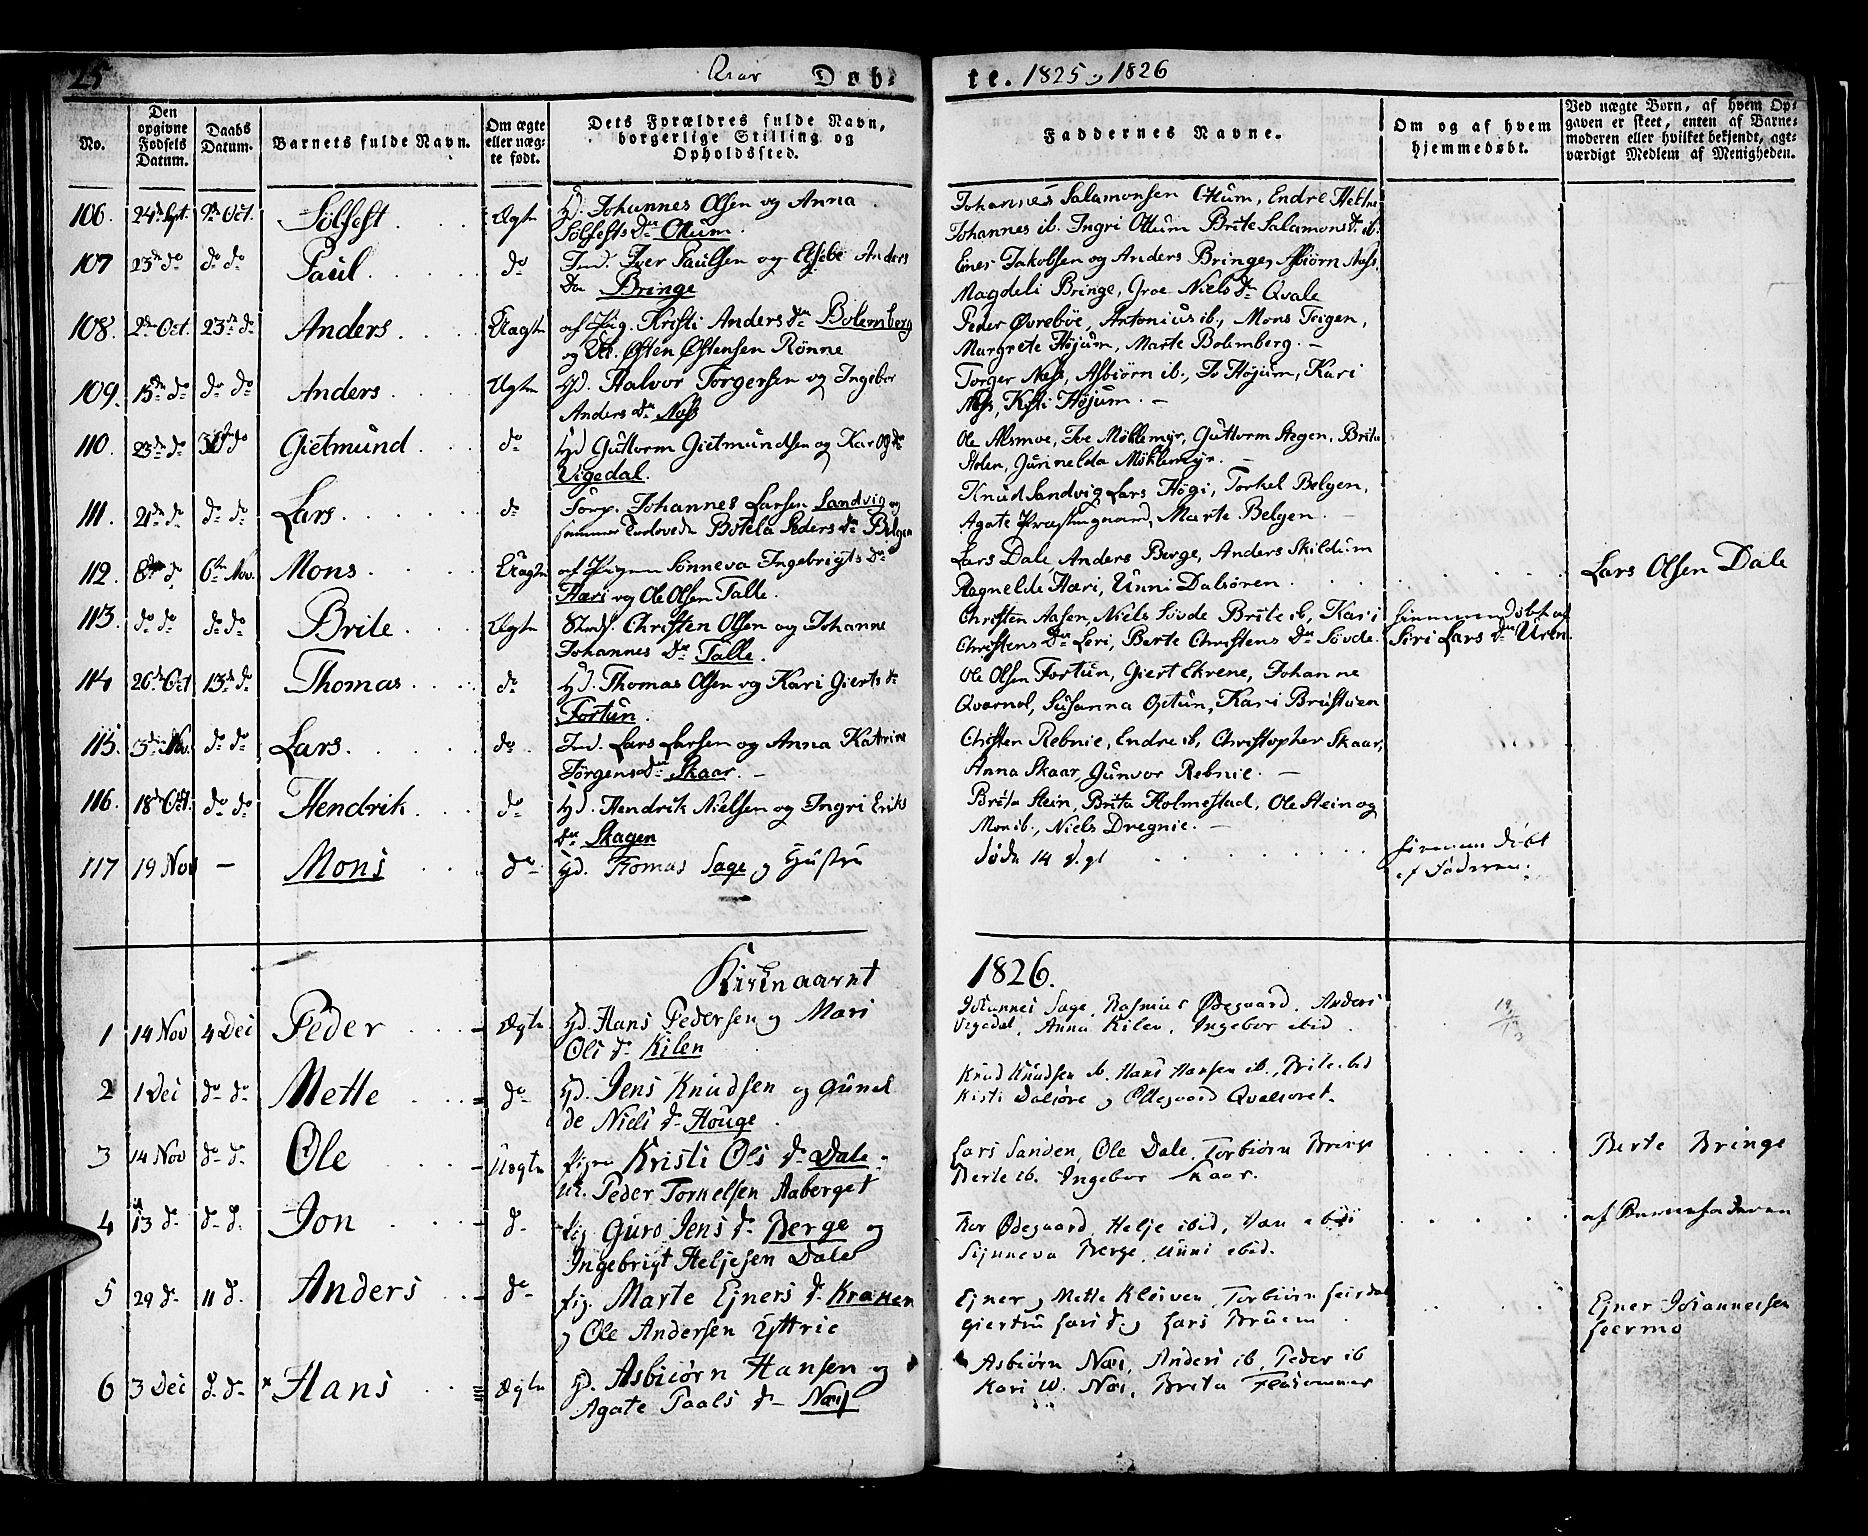 25 Aar Døb-
te. 1825, 1826
No. Den opgivne Fødsels Datum. Daabs Datum. Barnets fulde Navn. Om ægte eller uægte født. Dets Forældres fulde Navn, borgerlige Stilling og Opholdssted.
Faddernes Navne. Om og af hvem hjemmedøbt. Ved uægte Børn, af hvem Opgaven er skeet, enten af Barnemoderen eller hvilket bekjendt, agtværdigt Medlem af Menigheden.
106. 24de Sept. 9de Oct. Sølfest Ægte Hd. Johannes Olsen og Anna
Sølfestsdr. Ottum.
Johannes Salamonsen Ottum, Endre
Johannes ib. Ingri Ottum Brite Salamonsdr. ib.
107 23de do do do Paul do Ind. Iver Paulsen og Elsebe Anders
Dr. Bringe
Einer Jakobsen og Anders Bringe, Asbiørn Næss,
Magdeli Bringe, Groe Nielsdr. Qvale
108. 2den Oct. 23de do Anders Uægte af Pig. Kristi Andersdr. Bolemberg
og Østen Østensen Rønne
Peder Øvrebøe, Antonius ib, Mons Teigen,
Margrete Høium, Marte Bolemberg. -
109. 15de do do do Anders Ægte Hd. Halvor Torgersen og Ingebor
Andersdr. Næss
Torger Næss, Asbiørn ib., Jo Høium, Kari
Næss, Kisti Høium. -
110. 23de do do Gietmund do Hd Guttorm Gietmundsen og Kar
Vigedal.
Ole Alsmoe, Ive Møklemyr, Guttorm Stegen, Brita
Stølen, Gunnelda Møklemyr. -
111. 21de do do do Lars. do Johannes Larsen Sandvig og
Botela Pedersdr. Belgen
Knud Sandvig Lars Høgi, Torkel Belgen,
Agate Præstegaard, Marte Belgen. -
112. 8de do 6te Nov. Mons Uægte af Pigen Sønneva Ingebrigtsdr.
Hæri og Ole Olsen Talle.
Lars Dale Anders Berge, Anders Skildum
Ragnelde Hæri, Unni Dalsøren
Lars Olsen Dale
113. do do do do Brite. Ægte Christen Olsen og Johanne
Johannesdr. Talle.
Christen Aasen, Niels Søvde Brite ib, Kari
Christensdr. Leri, Berte Christensdr. Søvde.
hiemmedøbt af
Siri Larsdr.
114 26de Oct 13de do Thomas do Hd. Thomas Olsen og Kari Giertsdr.
Fortun.
Ole Olsen Fortun, Giert Ekrene, Johanne
Qværnol, Susanna Optun, Kari Brustuen
115. do do Lars. do Ind. Lars Larsen og Anna Katrine
Jørgensdr. Skaar. -
Christen Rebnie, Endre ib, Christopher Skaar,
Anna Skaar, Gunvor Rebnie. -
116. 18de Oct. do do Hendrik do Hd. Hendrik Nielsen og Ingri Eriks
dr. Skagen
Brita Stein, Brita Holmestad, Ole Stein og
Mon ib., Niels Dregnie. -
117 19 Nov - Mons do Hd. Tomas Sage og Hustru
Døde 14 d. gl
hiemmedøbt
af Faderen.
Kirkeaaret
1826.
1 14 Nov 4 Dec Peder Ægte Hd. Hans Pedersen og Mari
Olsdr. Kilen
Johannes Sage, Rasmus Ødegaard. Anders
Vigedal, Anna Kilen, Ingebor ibid.
2 1 Dec do do Mette do Hd. Jens Knudsen og Gunel
de Nielsdr. Houge.
Knud Knudsen ib. Hans Hansen ib., Brite ibd
Kisti Dalsøre og Oldegaard Qvalsoret.
3 14 Nov do do Ole Uægte Pigen Kristi Olsdr. Dale
Peder Torkelsen Aaberget
Lars Sanden, Ole Dale, Torbiørn Bringe
Berte ib. Ingebor Skaar.
Berte Bringe
4 13 do do do Jon do Pig Guro Jensdr. Berge og
Ingebrigt Heljesen Dale
Ødegaard, Helje ibid,
Synneva Berge, Unni ibid.
af Barnefaderen
5 29 do 11 do Anders do Pig. Marte Ejnersdr. Kroken
og Ole Andersen Yttrie
Ejner og Mette Kleiven, Torbiørn
Giertru Larsdr. og Lars Bruem
Ejner Johannessen
Feermo
6 3 Dec do do Hans Ægte Hd. Asbiørn Hansen og
Agate Paalsdr. Næs
Asbiørn Næs, Anders ib, Peder ib
Kari Næs, Brita